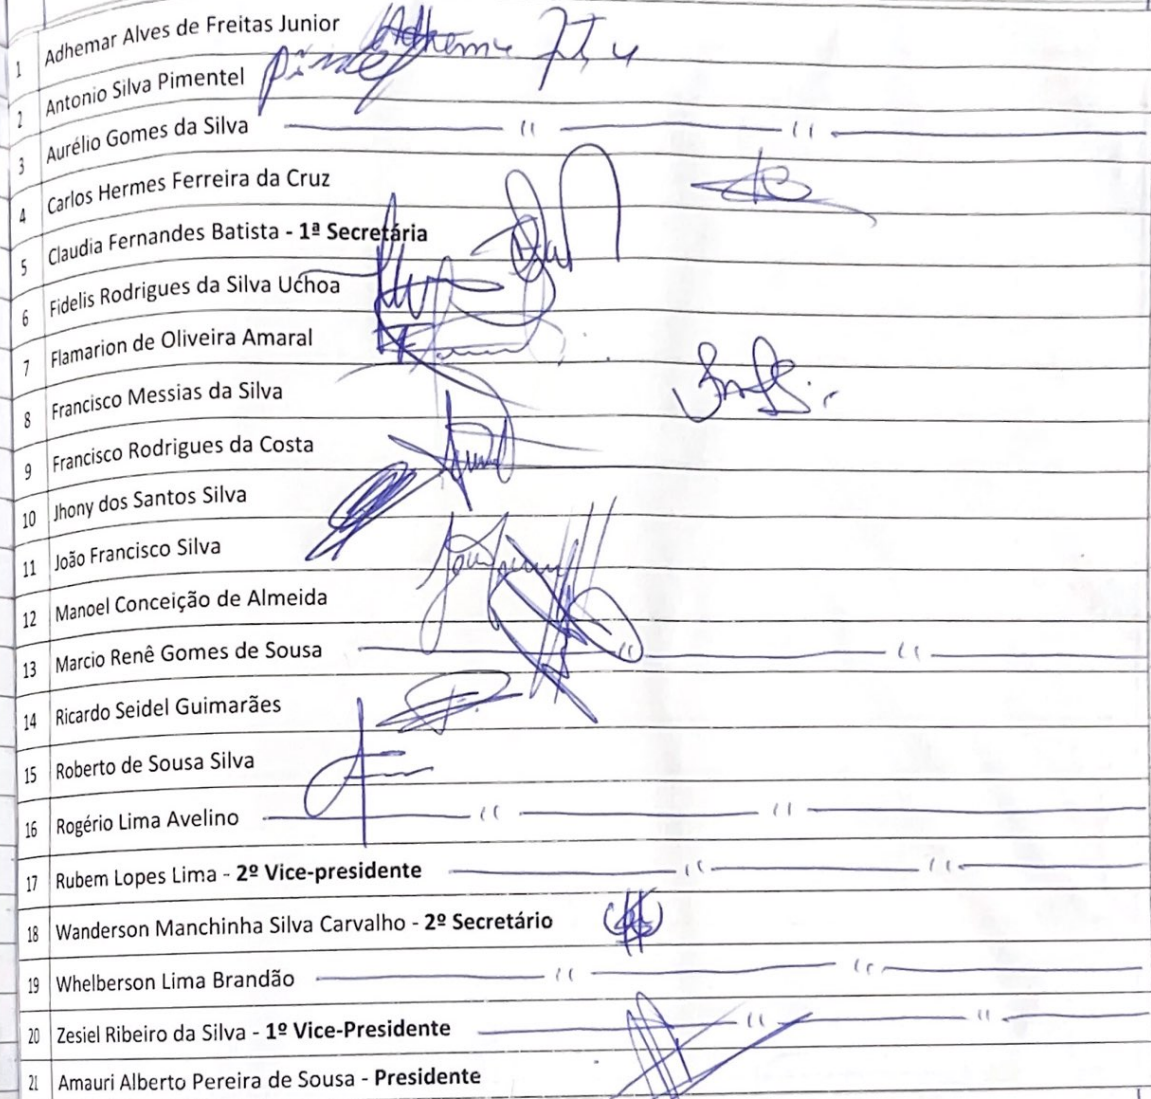 1 Adhemar Alves de Freitas Junior Adheme
2 Antonio Silva Pimentel
3 Aurélio Gomes da Silva —— '' —— '' ——
4 Carlos Hermes Ferreira da Cruz
5 Claudia Fernandes Batista - 1ª Secretária
6 Fidelis Rodrigues da Silva Uchoa
7 Flamarion de Oliveira Amaral
8 Francisco Messias da Silva
9 Francisco Rodrigues da Costa
10 Jhony dos Santos Silva
11 João Francisco Silva
12 Manoel Conceição de Almeida
13 Marcio Renê Gomes de Sousa —— '' —— '' ——
14 Ricardo Seidel Guimarães
15 Roberto de Sousa Silva
16 Rogério Lima Avelino —— '' —— '' ——
17 Rubem Lopes Lima - 2º Vice-presidente —— '' —— '' ——
18 Wanderson Manchinha Silva Carvalho - 2º Secretário
19 Whelberson Lima Brandão —— '' —— '' ——
20 Zesiel Ribeiro da Silva - 1º Vice-Presidente —— '' —— '' ——
21 Amauri Alberto Pereira de Sousa - Presidente